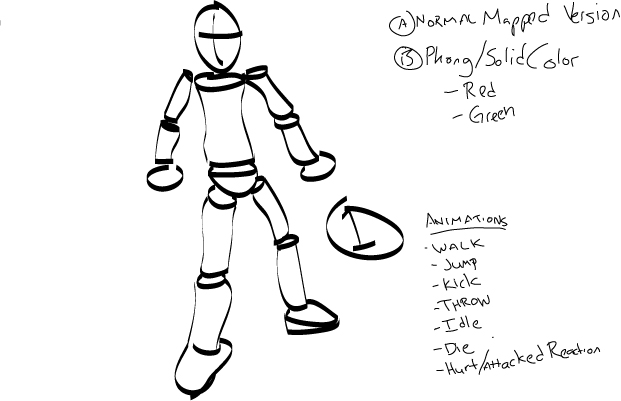 A Normal Mapped Version
B Phong/Solid Color
- Red
- Green
1
Animations
- Walk
- Jump
- Kick
- Throw
- Idle
- Die
- Hurt/Attacked Reaction